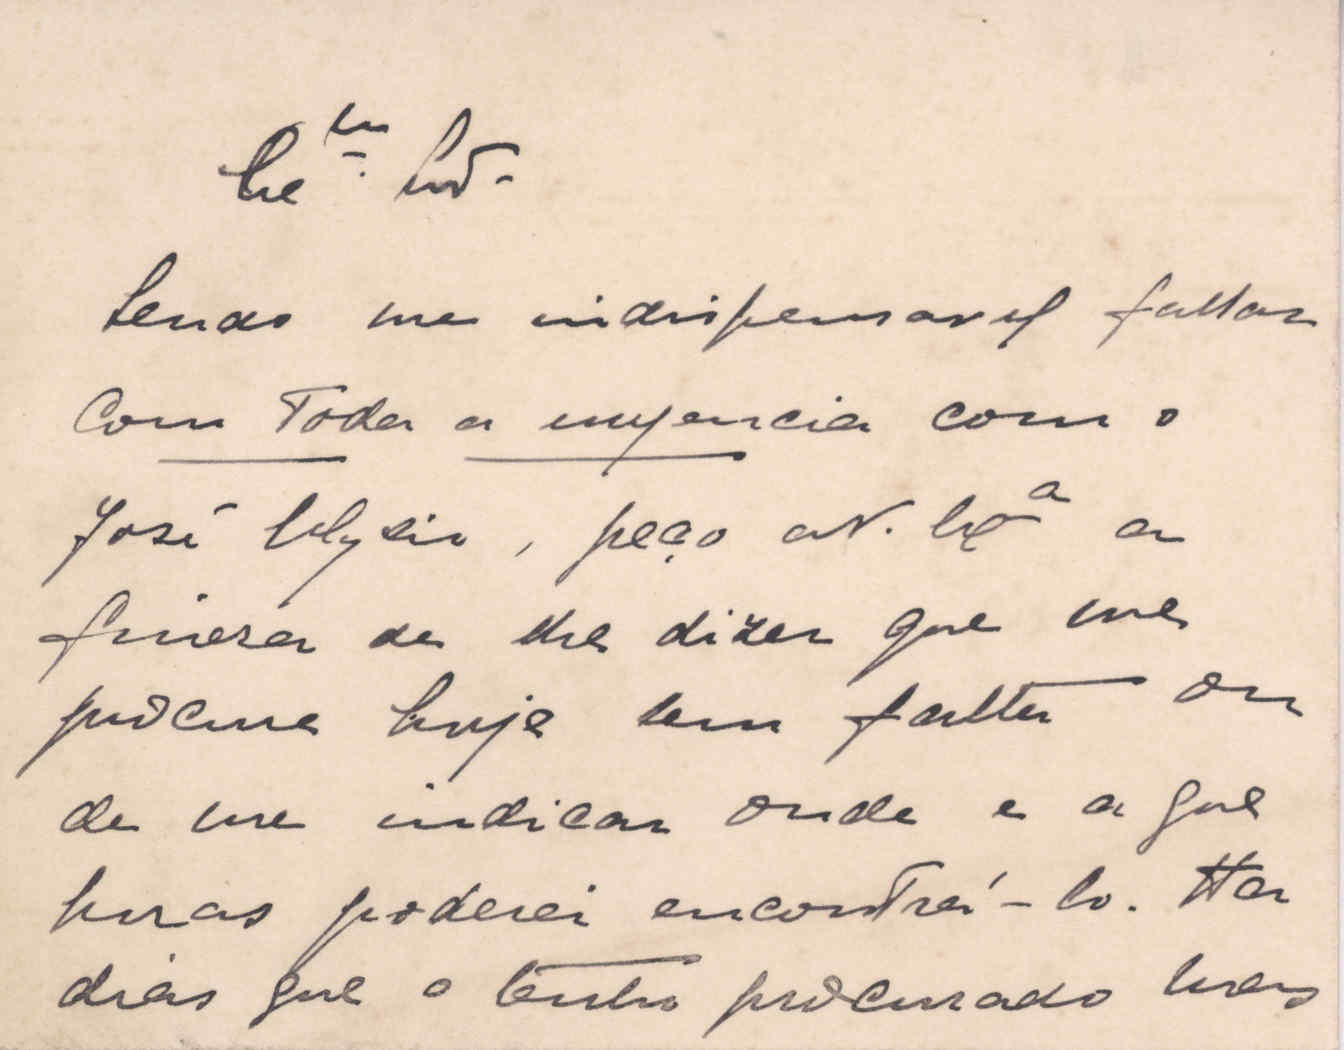 Ex.ma Snrª
Sendo me indispensavel fallar
com toda a urgencia com o
José Ulysio, peço a V. Exª a
fineza de lhe dizer que me
procure hoje sem falta ou
de me indicar onde e a que
horas poderei encontrá-lo. Ha
dias que o tenho procurado mas